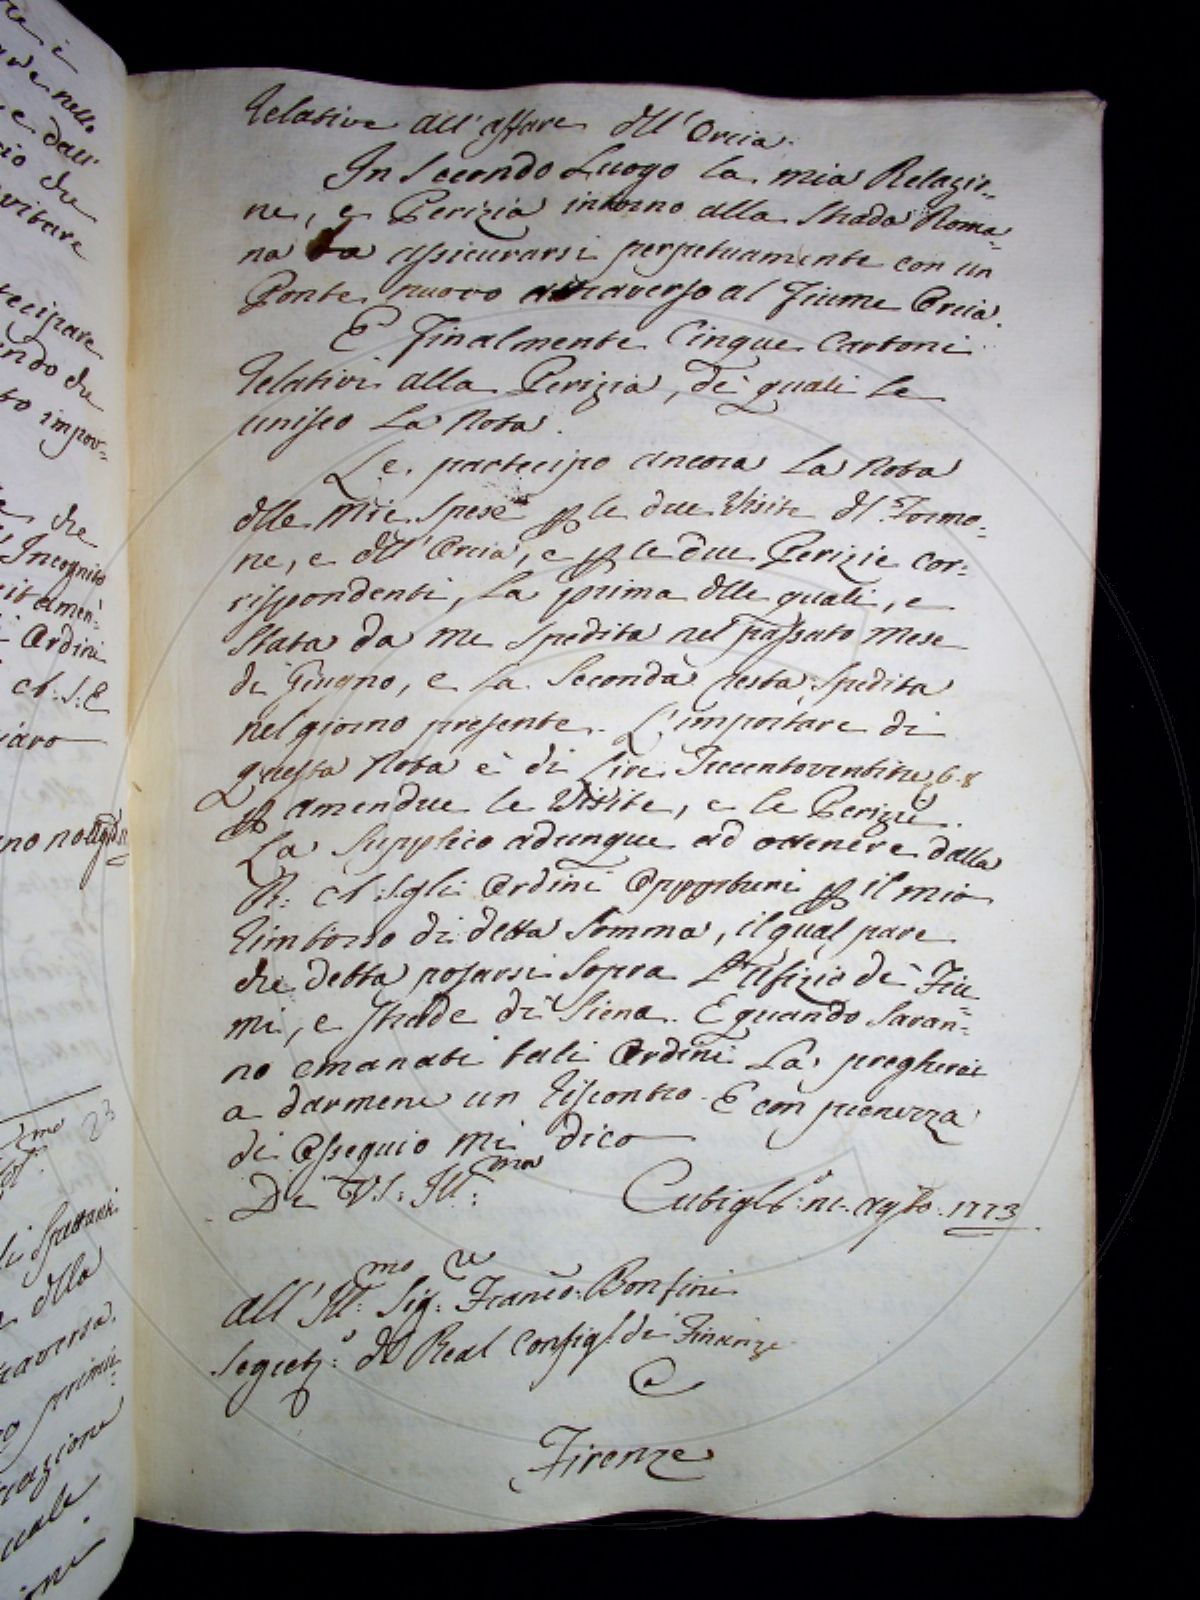 relative all'affare dll'Orcia.
In Secondo Luogo la mia Relazio-
ne, e Perizia intorno alla Strada Roma-
na da assicurarsi perpetuamente con un
Ponte nuovo attraverso al Fiume Orcia.
E Finalmente Cinque Cartoni
relativi alla Perizia, de' quali le
unisco La Nota.
Le partecipo ancora La Nota
dlle Mie Spese p le due Visite dl Formo-
ne, e dll'Orcia, e p le due Perizie cor-
rispondenti, La prima dlle quali, e
Stata da me Spedita nel passato Mese
di Giugno, e La Seconda resta Spedita
nel giorno presente. L'importare di
questa Nota è di Lire Trecentoventitre 6.8
p amendue le Visite, e le Perizie.
La Supplico adunque ad ottenere dalla
R: A: S. gli Ordini Opportuni p il mio
rimborso di detta Somma, il qual pare
che debba posarsi Sopra L'Ufizio de' Fiu-
mi, e Strade di Siena. E quando Saran-
no emanati tali Ordini La pregherei
a darmene un riscontro. E con pienezza
di Ossequio mi dico
Di V.S: Ill:ma
Agsto. 1773
all' Ill:mo Sig:re Franco: Bonfini
Segret:o dl Real Consigl. di Finanze
Firenze
nello
e dall'
che
tecipare
ndo che
to impor-
che
Incognito
Ordini
A: S: E
dlla
primie